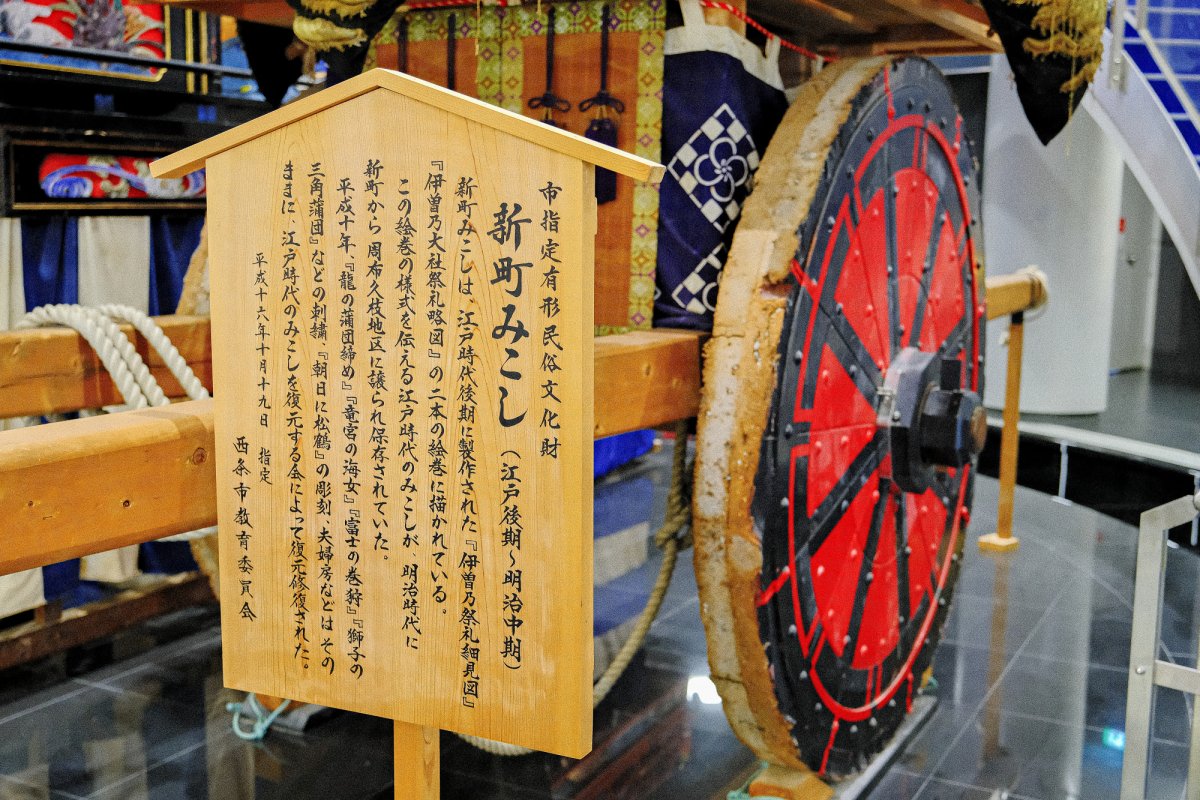 市指定有形民俗文化財
新町みこし（江戸後期～明治中期）
新町みこしは、江戸時代後期に製作された『伊曽乃祭礼細見図』
『伊曽乃大社祭礼略図』の二本の絵巻に描かれている。
この絵巻の様式を伝える江戸時代のみこしが、明治時代に
新町から周布久枝地区に譲られ保存されていた。
平成十年、『龍の蒲団締め』『竜宮の海女』『富士の巻狩』『獅子の
三角蒲団』などの刺繍、『朝日に松鶴』の彫刻、夫婦房などはその
ままに、江戸時代のみこしを復元する会によって復元修復された。
平成十六年十月十九日　指定
西条市教育委員会